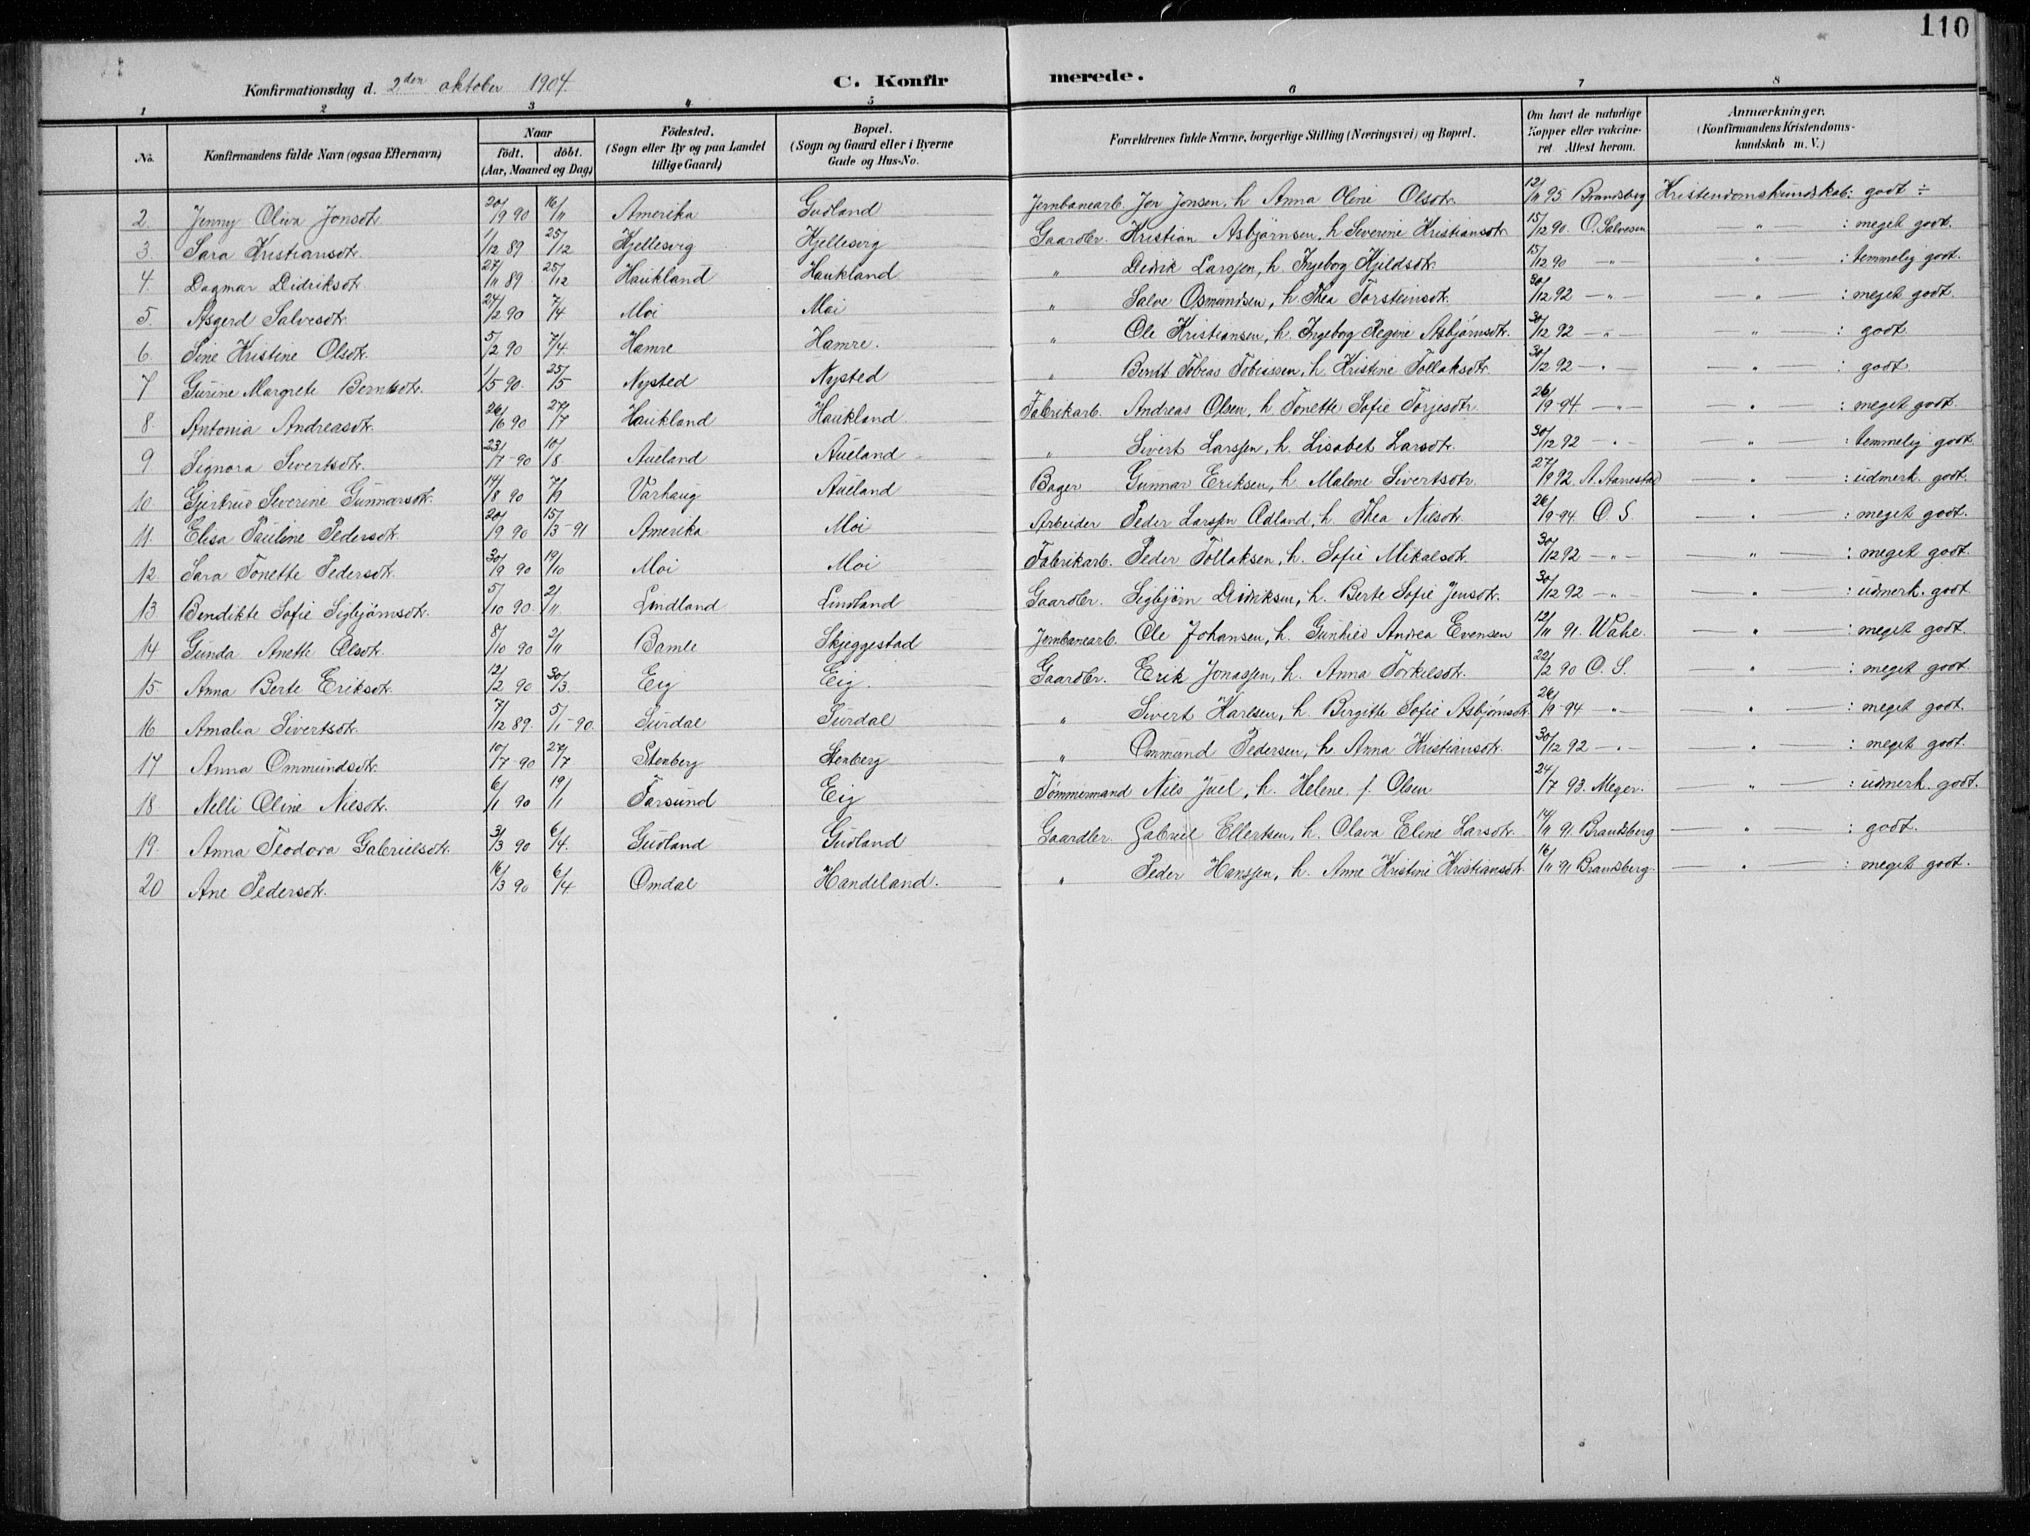 110
Konfirmationsdag d. 2den oktober 1904.
C. Konfirmerede.
1 2 3 4 5 6 7 8
No. Konfirmandens fulde Navn (ogsaa Efternavn) Naar født. døbt. (Aar, Maaned og Dag) Födested. (Sogn eller By og paa Landet tillige Gaard) Bopæl. (Sogn og Gaard eller i Byerne Gade og Hus-No. Forældrenes fulde Navne, borgerlige Stilling (Næringsvei) og Bopæl. Om havt de naturlige Kopper eller vakcineret Attest herom. Anmærkninger. (Konfirmandens Kristendomskundskab m. V.)
2 Jenny Oliva Jonsdtr. 20/9 90 16/11 Amerika Gudland Jernbanearb. Jon Jonsen, h. Anna Oline Olsdtr. 12/11 95 Brandsberg Kristendomskundskab: godt ÷
3. Sara Kristiansdtr. 1/12 89 25/12 Kjellesvig Kjellesvig Gaardbr. Kristian Asbjørnsen, h. Severine Kristiansdtr. 15/12 90. O. Salvesen " : meget godt.
4 Dagmar Didriksdtr. 27/11 89 25/12 Haukland Haukland " Didrik Larssen, h. Ingeborg Kjildsdtr. 15/12 90 — " — " : temmelig godt.
5. Asgerd Salvesdtr. 24/2 90 7/4 Moi Moi " Salve Osmundsen, h. Thea Torsteinsdtr. 30/12 92 — " — " : meget godt.
6. Sine Kristine Olsdtr. 5/2 90 7/4. Hamre Hamre. " Ole Kristiansen, h. Ingeborg Regine Asbjørnsdtr. 30/12 92 — " — " : godt
7 Gurine Margrete Berntsdtr. 1/5 90. 25/5 Nysted Nysted " Berndt Tobias Tobiassen, h. Kristine Tollaksdtr. 30/12 92 — " — " : godt
8. Antonia Andreasdtr. 26/6 90 27/7 Haukland Haukland. Fabrikarb. Andreas Olsen, h. Tonette Sofie Torjesdtr. 26/9 94 — " — " : meget godt.
9 Signora Sivertsdtr. 23/7 90 10/8. Aueland Aueland " Sivert Larssen, h. Lisabet Larsdtr. 30/12 92 — " — " : temmelig godt.
10 Gjertrud Severine Gunnarsdtr. 14/8 90 7/9 Varhaug Aueland Bager Gunnar Eriksen, h. Malene Sivertsdtr. 27/9 92 A. Aanestad " : udmerk. godt.
11. Elisa Pauline Pedersdtr. 20/9 90 15/3 - 91 Amerika Moi Arbeider Peder Larssen Adland, h. Thea Nilsdtr. 26/9 94. O. S " : meget godt.
12. Sara Tonette Pedersdtr. 30/9 90 19/10 Moi Moi Fabrikarb. Peder Tollaksen, h. Sofie Mikalsdtr. 30/12 92 — " — " : meget godt
13 Bendikte Sofie Sigbjørnsdtr. 5/10 90. 2/11 Lindland Lindland Gaardbr. Sigbjørn Didriksen, h. Berte Sofie Jensdtr. 30/12 92 — " — " : udmerk. godt
14 Gunda Anette Olsdtr. 8/10 90 2/11 Bamle Skjeggestad Jernbanearb. Ole Johansen, h. Gunhild Andrea Evensen 12/11 91. " : meget godt.
15 Anna Berte Eriksdtr. 12/2 90 30/3. Eig Eig. Gaardbr. Erik Jonassen, h. Anna Torkelsdtr. 22/2 90 O. S. " : meget godt.
16 Amalia Sivertsdtr. 7/12 89. 5/1 - 90. Surdal Surdal " Sivert Karlsen, h. Birgitte Sofie Asbjørnsdtr. 26/9 94 — " — " : meget godt.
17 Anna Ommundsdtr. 10/7 90 27/7 Stenberg Stenberg " Ommund Pedersen, h. Anna Kristiansdtr. 30/12 92 — " — " : meget godt.
18 Nelli Oline Nilsdtr. 6/1 90 19/1 Farsund Eig Tømmermand Nils Juel, h. Helene f. Olsen 24/7 93. Meyer. " : udmerk. godt.
19. Anna Teodora Gabrielsdtr. 3/3 90 6/4. Gudland Gudland Gaardbr. Gabriel Ellertsen, h. Olava Eline Larsdtr. 14/11 91. Brandsberg " : godt.
20 Ane Pedersdtr. 16/3 90 6/4 Omdal Handeland. " Peder Hanssen, h. Anne Kristine Kristiansdtr. 16/11 91 Brandsberg. " : meget godt.